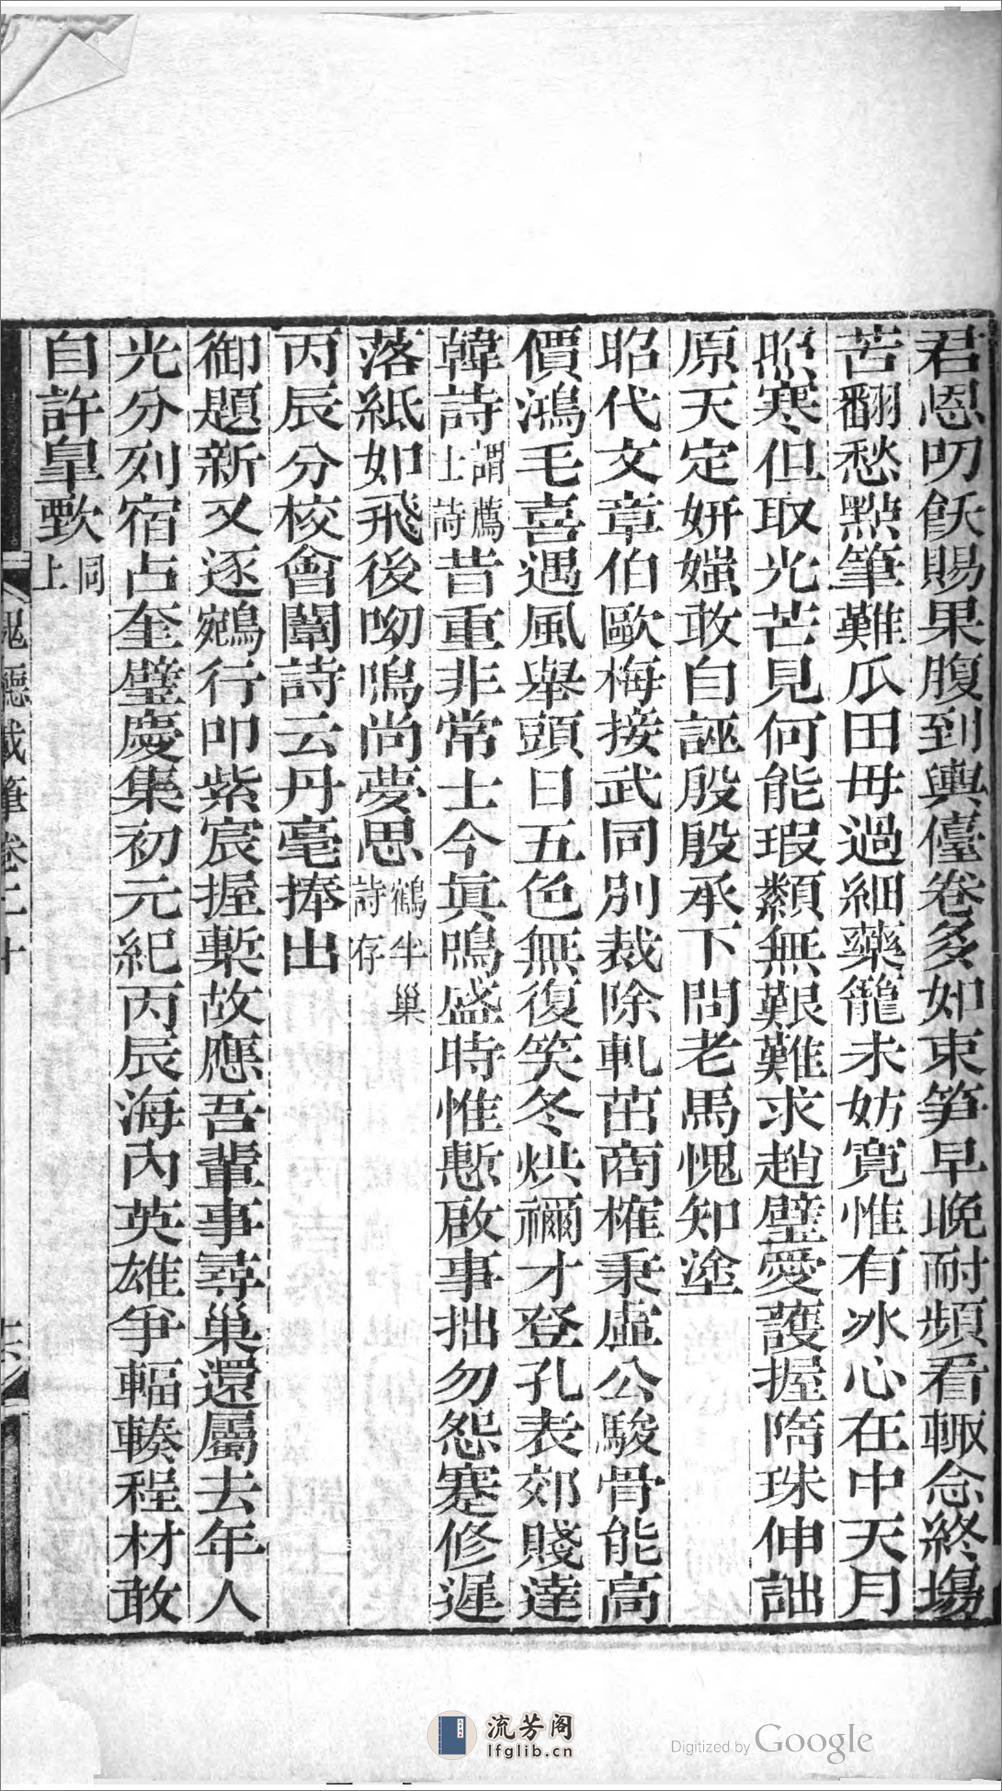 君恩叨飫賜果腹到輿儓卷多如束笋早晚耐頻看輙念終塲
苦翻愁點筆難瓜田毋過細藥籠未妨寛惟有冰心在中天月
照寒但取光芒見何能瑕纇無艱難求趙璧愛護握隋珠伸詘
原天定妍媸敢自誣殷殷承下問老馬愧知塗
昭代文章伯歐梅接武同別裁除軋茁商榷秉虛公駿骨能高
價鴻毛喜遇風舉頭日五色無復笑冬烘禰才登孔表郊賤達
韓詩謂薦士詩昔重非常士今眞鳴盛時惟慙啟事拙勿怨蹇修遲
落紙如飛後呦鳴尚夢思鶴半巢詩存
丙辰分校會闈詩云丹毫捧出
御題新又逐鵷行叩紫宸握槧故應吾輩事尋巢還屬去年人
光分列宿占奎璧慶集初元紀丙辰海內英雄爭輻輳程材敢
自許皐甄同上
聽載筆卷二十